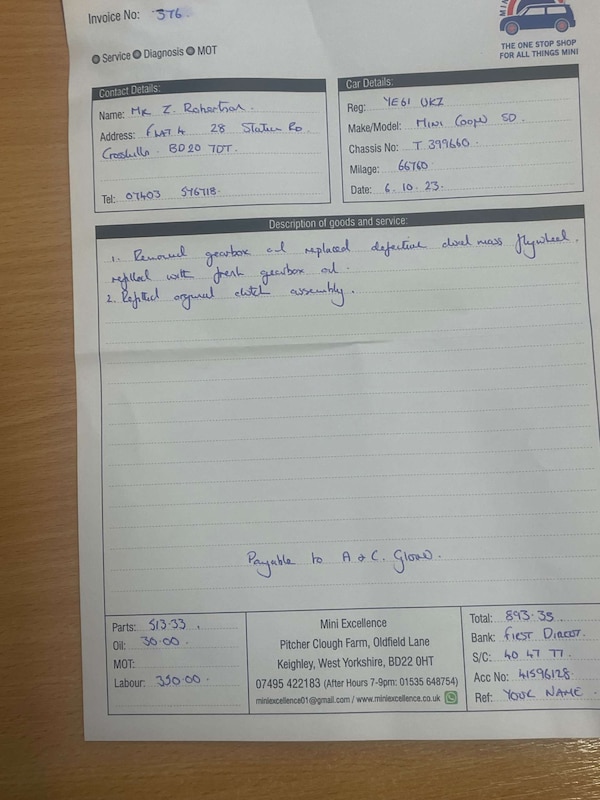 Invoice No: 376.
MINI
THE ONE STOP SHOP
FOR ALL THINGS MINI
Service Diagnosis MOT
Contact Details:
Name: Mr Z. Robertson.
Address: Flat 4 28 Station Ro.
Crosshills. BD20 7DT.
Tel: 07403 576718.
Car Details:
Reg: YE61 UKZ
Make/Model: Mini Cooper SD.
Chassis No: T 399660.
Milage: 66760.
Date: 6.10.23.
Description of goods and service:
1. Removed gearbox and replaced defective dual mass flywheel.
refilled with fresh gearbox oil.
2. Refitted original clutch assembly.
Payable to A & C.
Parts: 513.33.
Oil: 30.00.
MOT:
Labour: 350.00.
Mini Excellence
Pitcher Clough Farm, Oldfield Lane
Keighley, West Yorkshire, BD22 0HT
07495 422183 (After Hours 7-9pm: 01535 648754)
miniexcellence01@gmail.com / www.miniexcellence.co.uk
Total: 893.33
Bank: First Direct.
S/C: 40 47 77.
Acc No: 41596128.
Ref: YOUR NAME